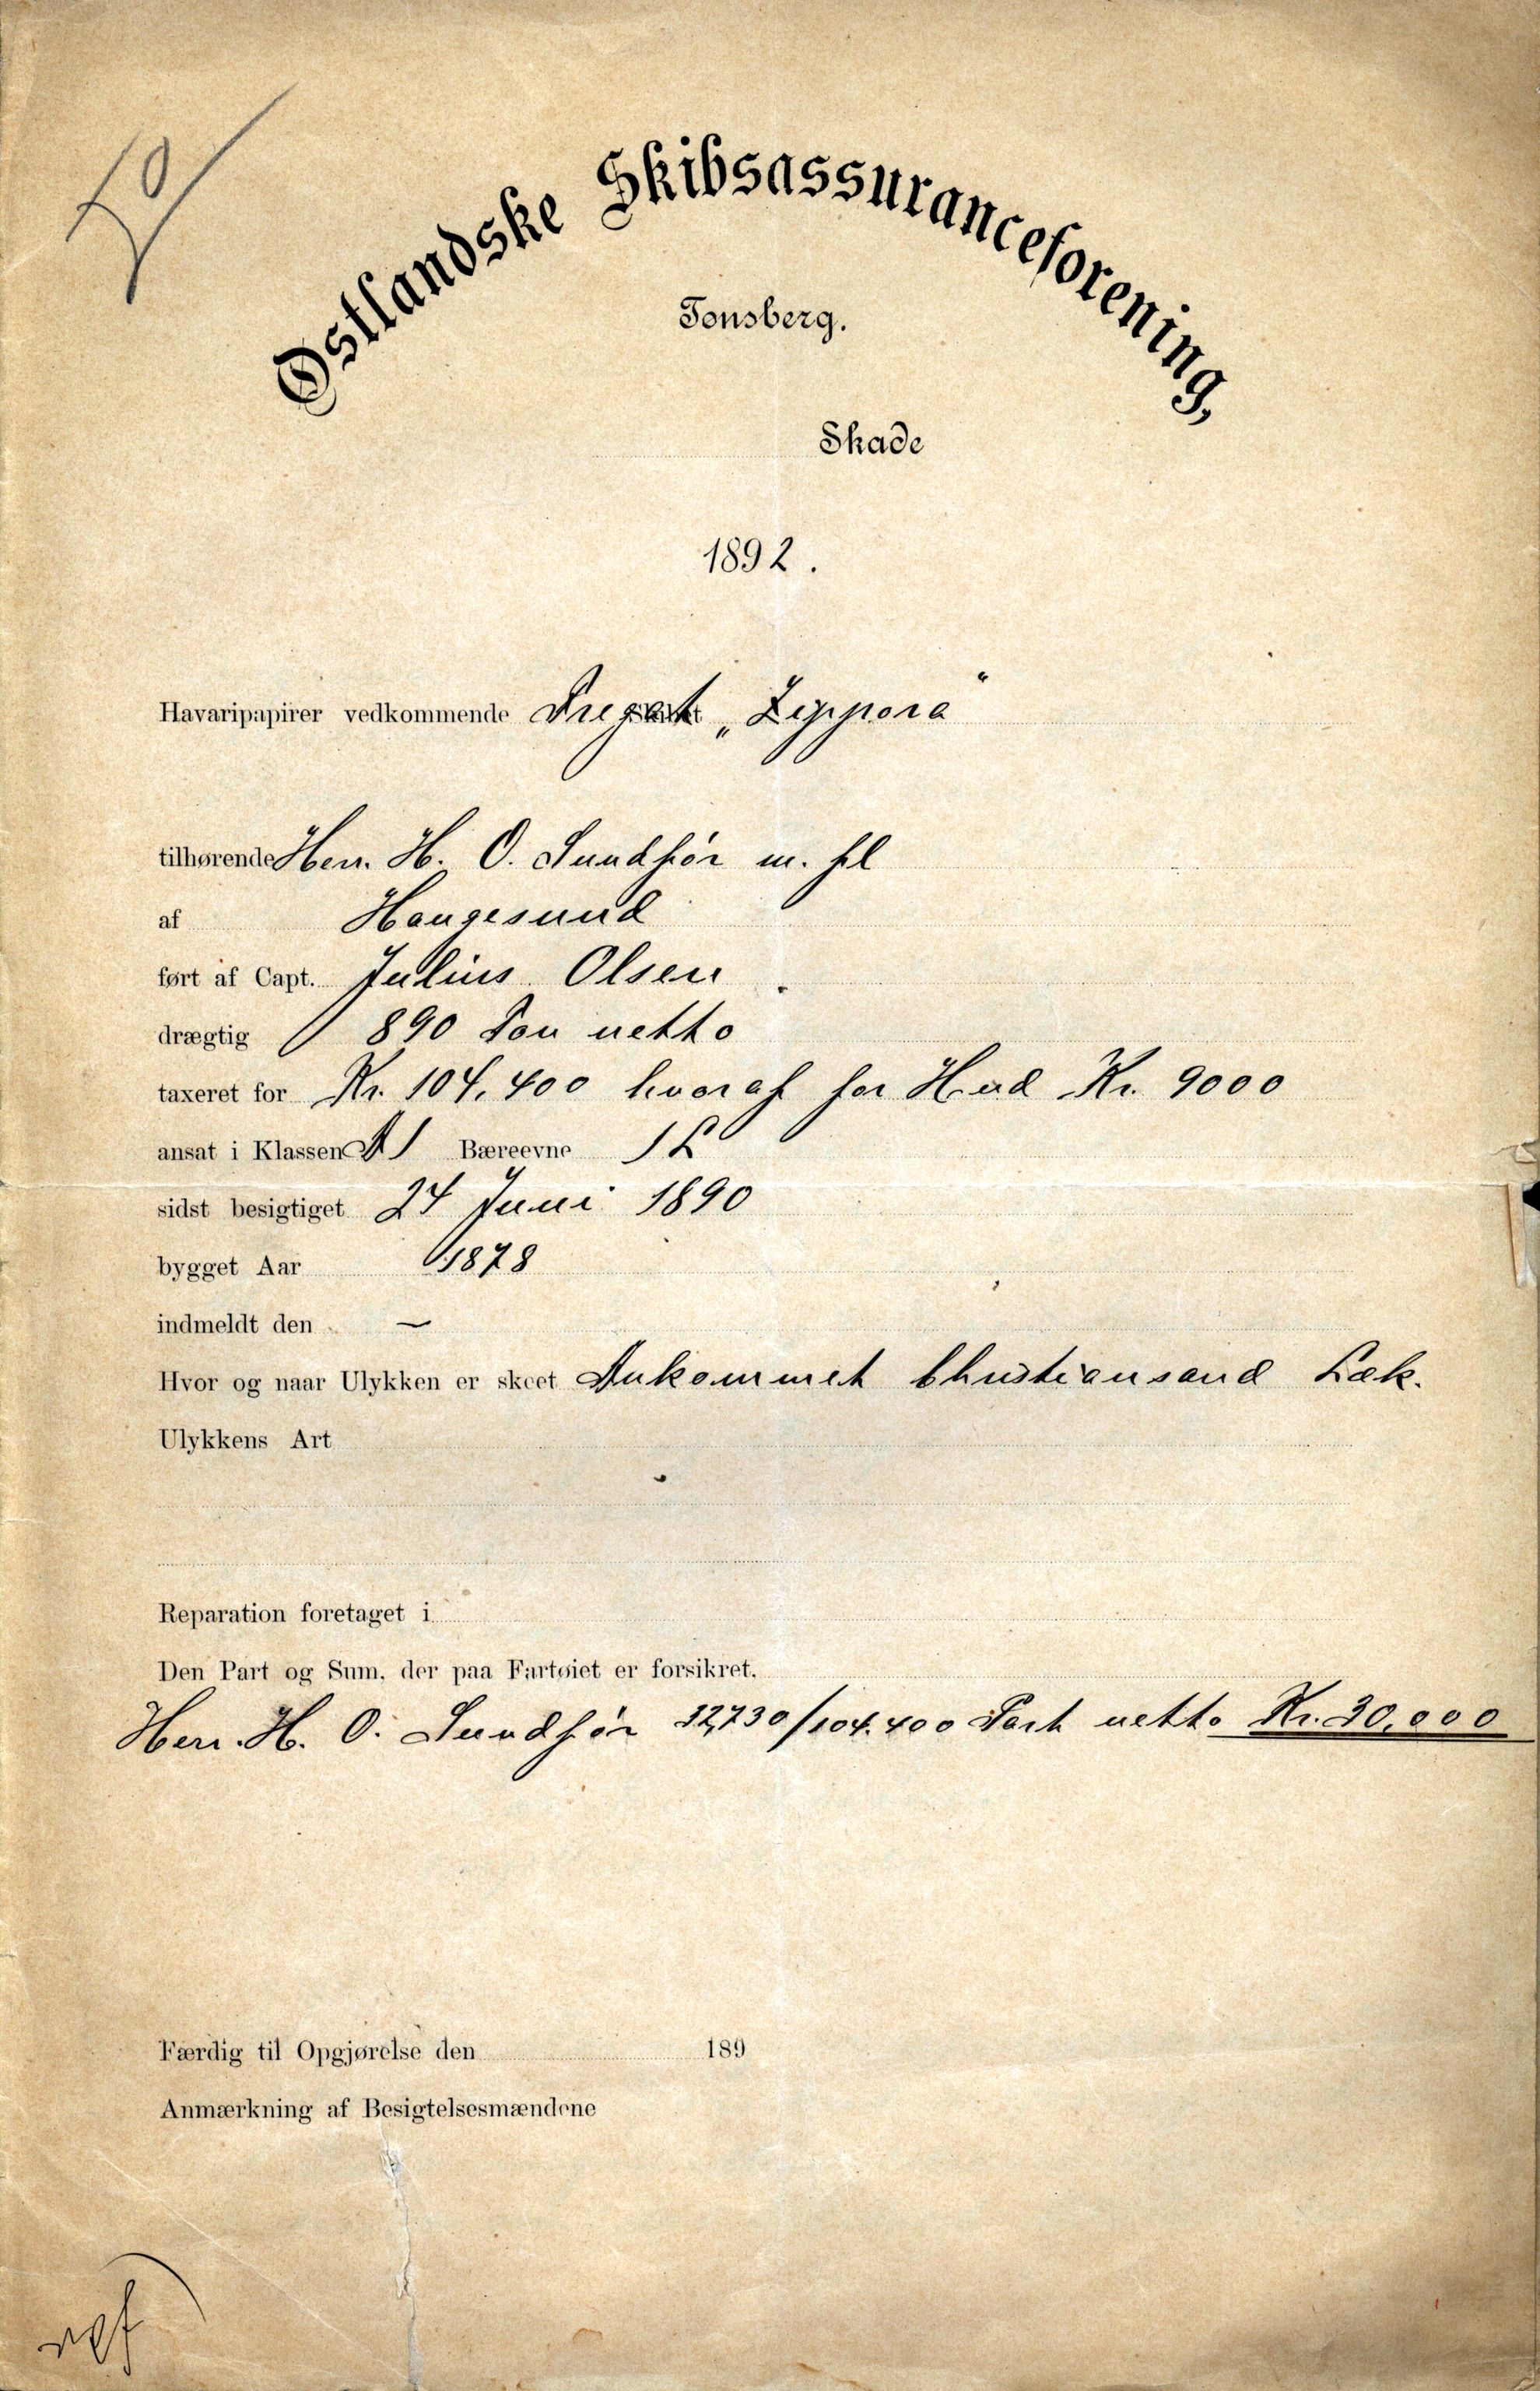 Østlandske Skibsassuranceforening,
Tønsberg.
Skade
1892.
Havaripapirer vedkommende Fregat „Zippora“
tilhørende Herr. H. O. Sundfør m. fl
af Haugesund
ført af Capt. Julius Olsen
drægtig 890 Ton netto
taxeret for Kr. 104,400 hvoraf for Hud Kr. 9000
ansat i Klassen A1 Bæreevne 1 L
sidst besigtiget 24 Juni 1890
bygget Aar 1878
indmeldt den —
Hvor og naar Ulykken er skeet Ankommet Christiansand Læk.
Ulykkens Art
Reparation foretaget i
Den Part og Sum, der paa Fartøiet er forsikret.
Herr. H. O. Sundfør 32,730/104.400 Part netto Kr. 30,000
Færdig til Opgjørelse den 189
Anmærkning af Besigtelsesmændene